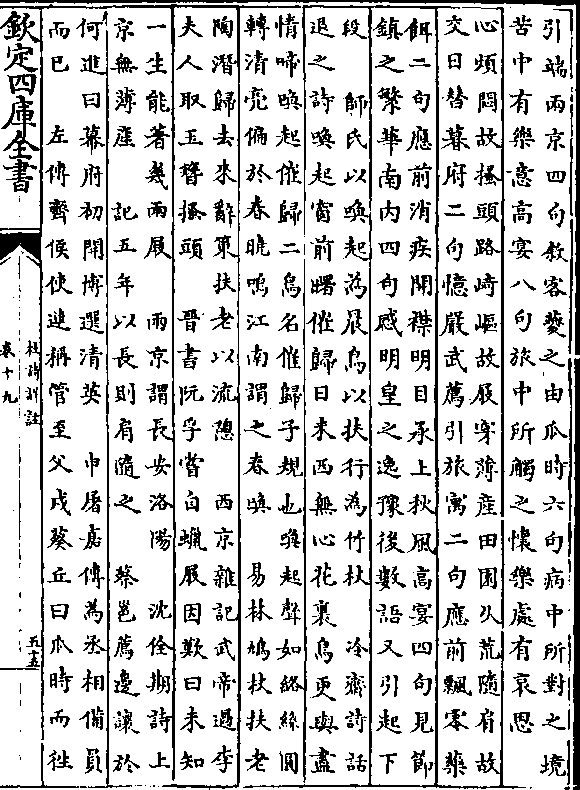 引端兩京四句敘客夔之由瓜時六句病中所對之境
苦中有樂意高宴八句旅中所觸之懷樂處有哀思
心煩悶故搔頭路崎嶇故屐穿薄産田園久荒隨肩故
交日替暮府二句憶嚴武薦引旅寓二句應前飄零藥
餌二句應前消疾開襟明目承上秋風高宴四句見節
鎮之繁華南内四句感明皇之逸豫後數語又引起下
段　師氏以喚起為晨鳥以扶行為竹杖　冷齋詩話
退之詩喚起窗前曙催歸日未西無心花裏鳥更與盡
情啼喚起催歸二鳥名催歸子規也喚起聲如絡絲圓
轉清亮偏於春曉鳴江南謂之春喚　易林鳩杖扶老
陶潛歸去來辭策扶老以流憩　西京雜記武帝過李
夫人取玉簪搔頭　晉書阮孚嘗自蠟屐因歎曰未知
一生能著幾兩屐　兩京謂長安洛陽　沈佺期詩上
京無薄産　記五年以長則肩隨之　蔡邕薦邊讓於
何進曰幕府初開博選清英　申屠嘉傳為丞相備員
而已　左傳齊侯使連稱管至父戍葵丘曰瓜時而往
欽定四庫全書
杜詩詳註
卷十九
五十五